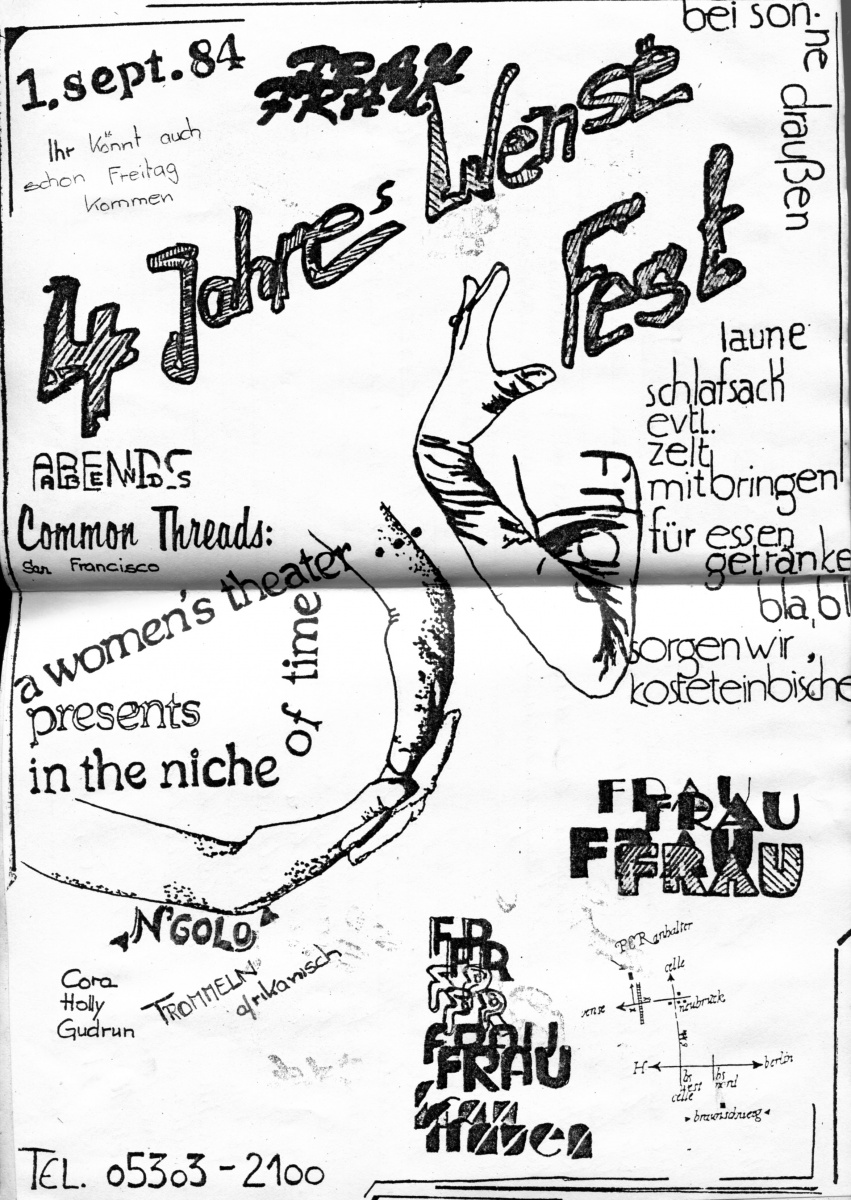 1. sept. 84
Ihr könnt auch
schon Freitag
kommen
FRAU
FRAU
Wense
4 Jahre's
Fest
bei son-
ne draußen
laune
schlafsack
evtl.
zelt
mitbringen
für essen
getränke
bla, bl
sorgen wir,
kostet einbische
ABENDS
ABENDS
Common Threads:
San Francisco
a women's theater ...
presents
in the niche
of time
Frau
N'GOLO
Cora
Holly
Gudrun
TROMMELN
afrikanisch
FRAU
FRAU
FRAU
FRAU
FR
FR
FRAU
FRAU
PER anhalter
celle
wense
neubrück
H
berlin
bs
west
bs
nord
celle
braunschweig
TEL. 05303-2100